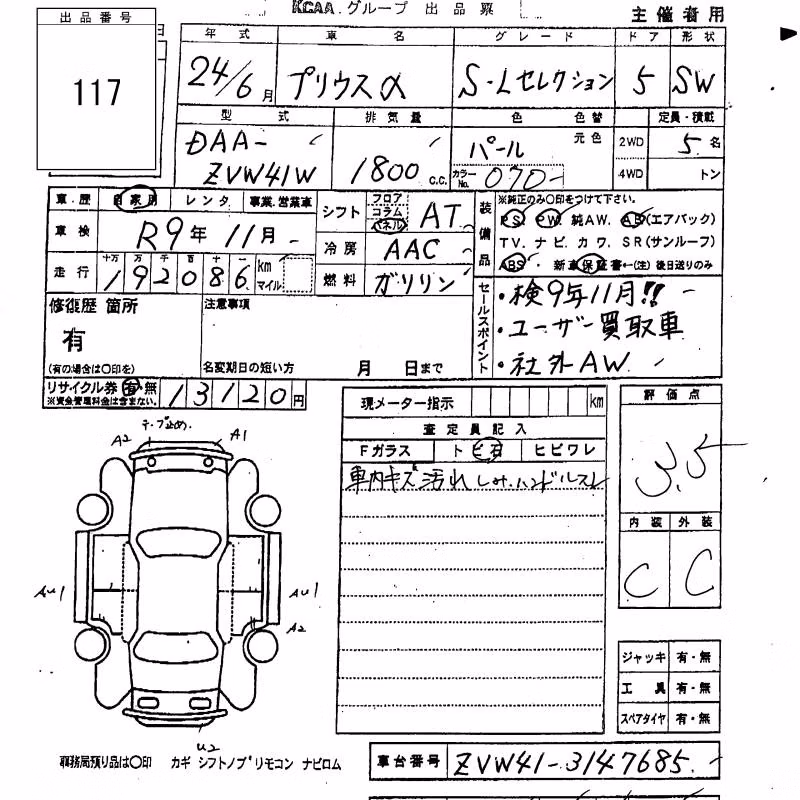 KCAA グループ 出品票
主催者用
出品番号
117
年式 車名 グレード ドア 形状
24/6月 プリウスα S・Lセレクション 5 SW
型式 排気量 色 色替 定員・積載
DAA-
ZVW41W 1800 C.C. パール 元色 2WD 5名
カラーNo. 070 4WD トン
車・歴 自家用 レンタ 事業、営業車
車検 R9年11月
走行 十万 万 千 百 十 192086 km マイル
シフト フロア コラム パネル AT
冷房 AAC
燃料 ガソリン
装備品
※純正のみ〇印をつけて下さい。
PS. PW. 純AW. AB(エアバック)
TV. ナビ. カワ. SR(サンルーフ)
ABS ・ 新車保証書←(注) 後日送りのみ
修復歴 箇所
有
(有の場合は〇印を)
注意事項
名変期日の短い方 月 日まで
セールスポイント
・検9年11月!!
・ユーザー買取車
・社外AW
リサイクル券 有 無 13120円
※資金管理料金は含まない。
現メーター指示 km
査定員記入
Fガラス トビ石 ヒビワレ
車内キズ汚れ しみ.ハンドルスレ
評価点
3.5
内装 外装
C C
テープ止め.
A2 A1
AU1 AU1
A2
U2
ジャッキ 有・無
工具 有・無
スペアタイヤ 有・無
事務局預り品は〇印 カギ シフトノブ リモコン ナビロム
車台番号 ZVW41-3147685